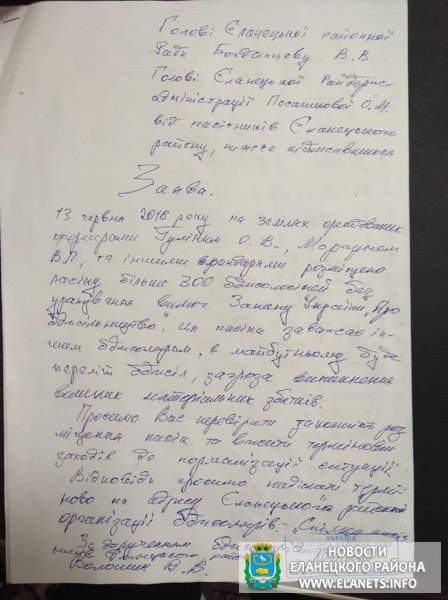 Голові Єланецької районної
Ради Богданцеву В.В.
Голові Єланецької Райдерж-
адміністрації Посашковой О.М.
від пасічників Єланецського
району, нижче підписавшихся
Заява.
13 червня 2018 року на землях орендованих
фермерами О.В.,
В.Л, та іншими орендарями розміщено
пасіку більш 300 бджолосімей без
урахування вимог Закону України „Про
бджільництво". Ця пасіка заважає ін-
шим бджолярам, в майбутньому буде
переліт бджіл, загроза виникнення
великих матеріальних збитків.
Просимо Вас перевірити законність роз
міщення пасік та вжити термінових
заходів до нормалізації ситуації.
Відповідь просимо надіслати термі-
ново на адресу Єланецського районної
організації бджолярів - „Спілка
За дорученням
Волошин В.В.
УКРАЇНА
НОВОСТИ
ЕЛАНЕЦКОГО РАЙОНА
WWW.ELANETS.INFO